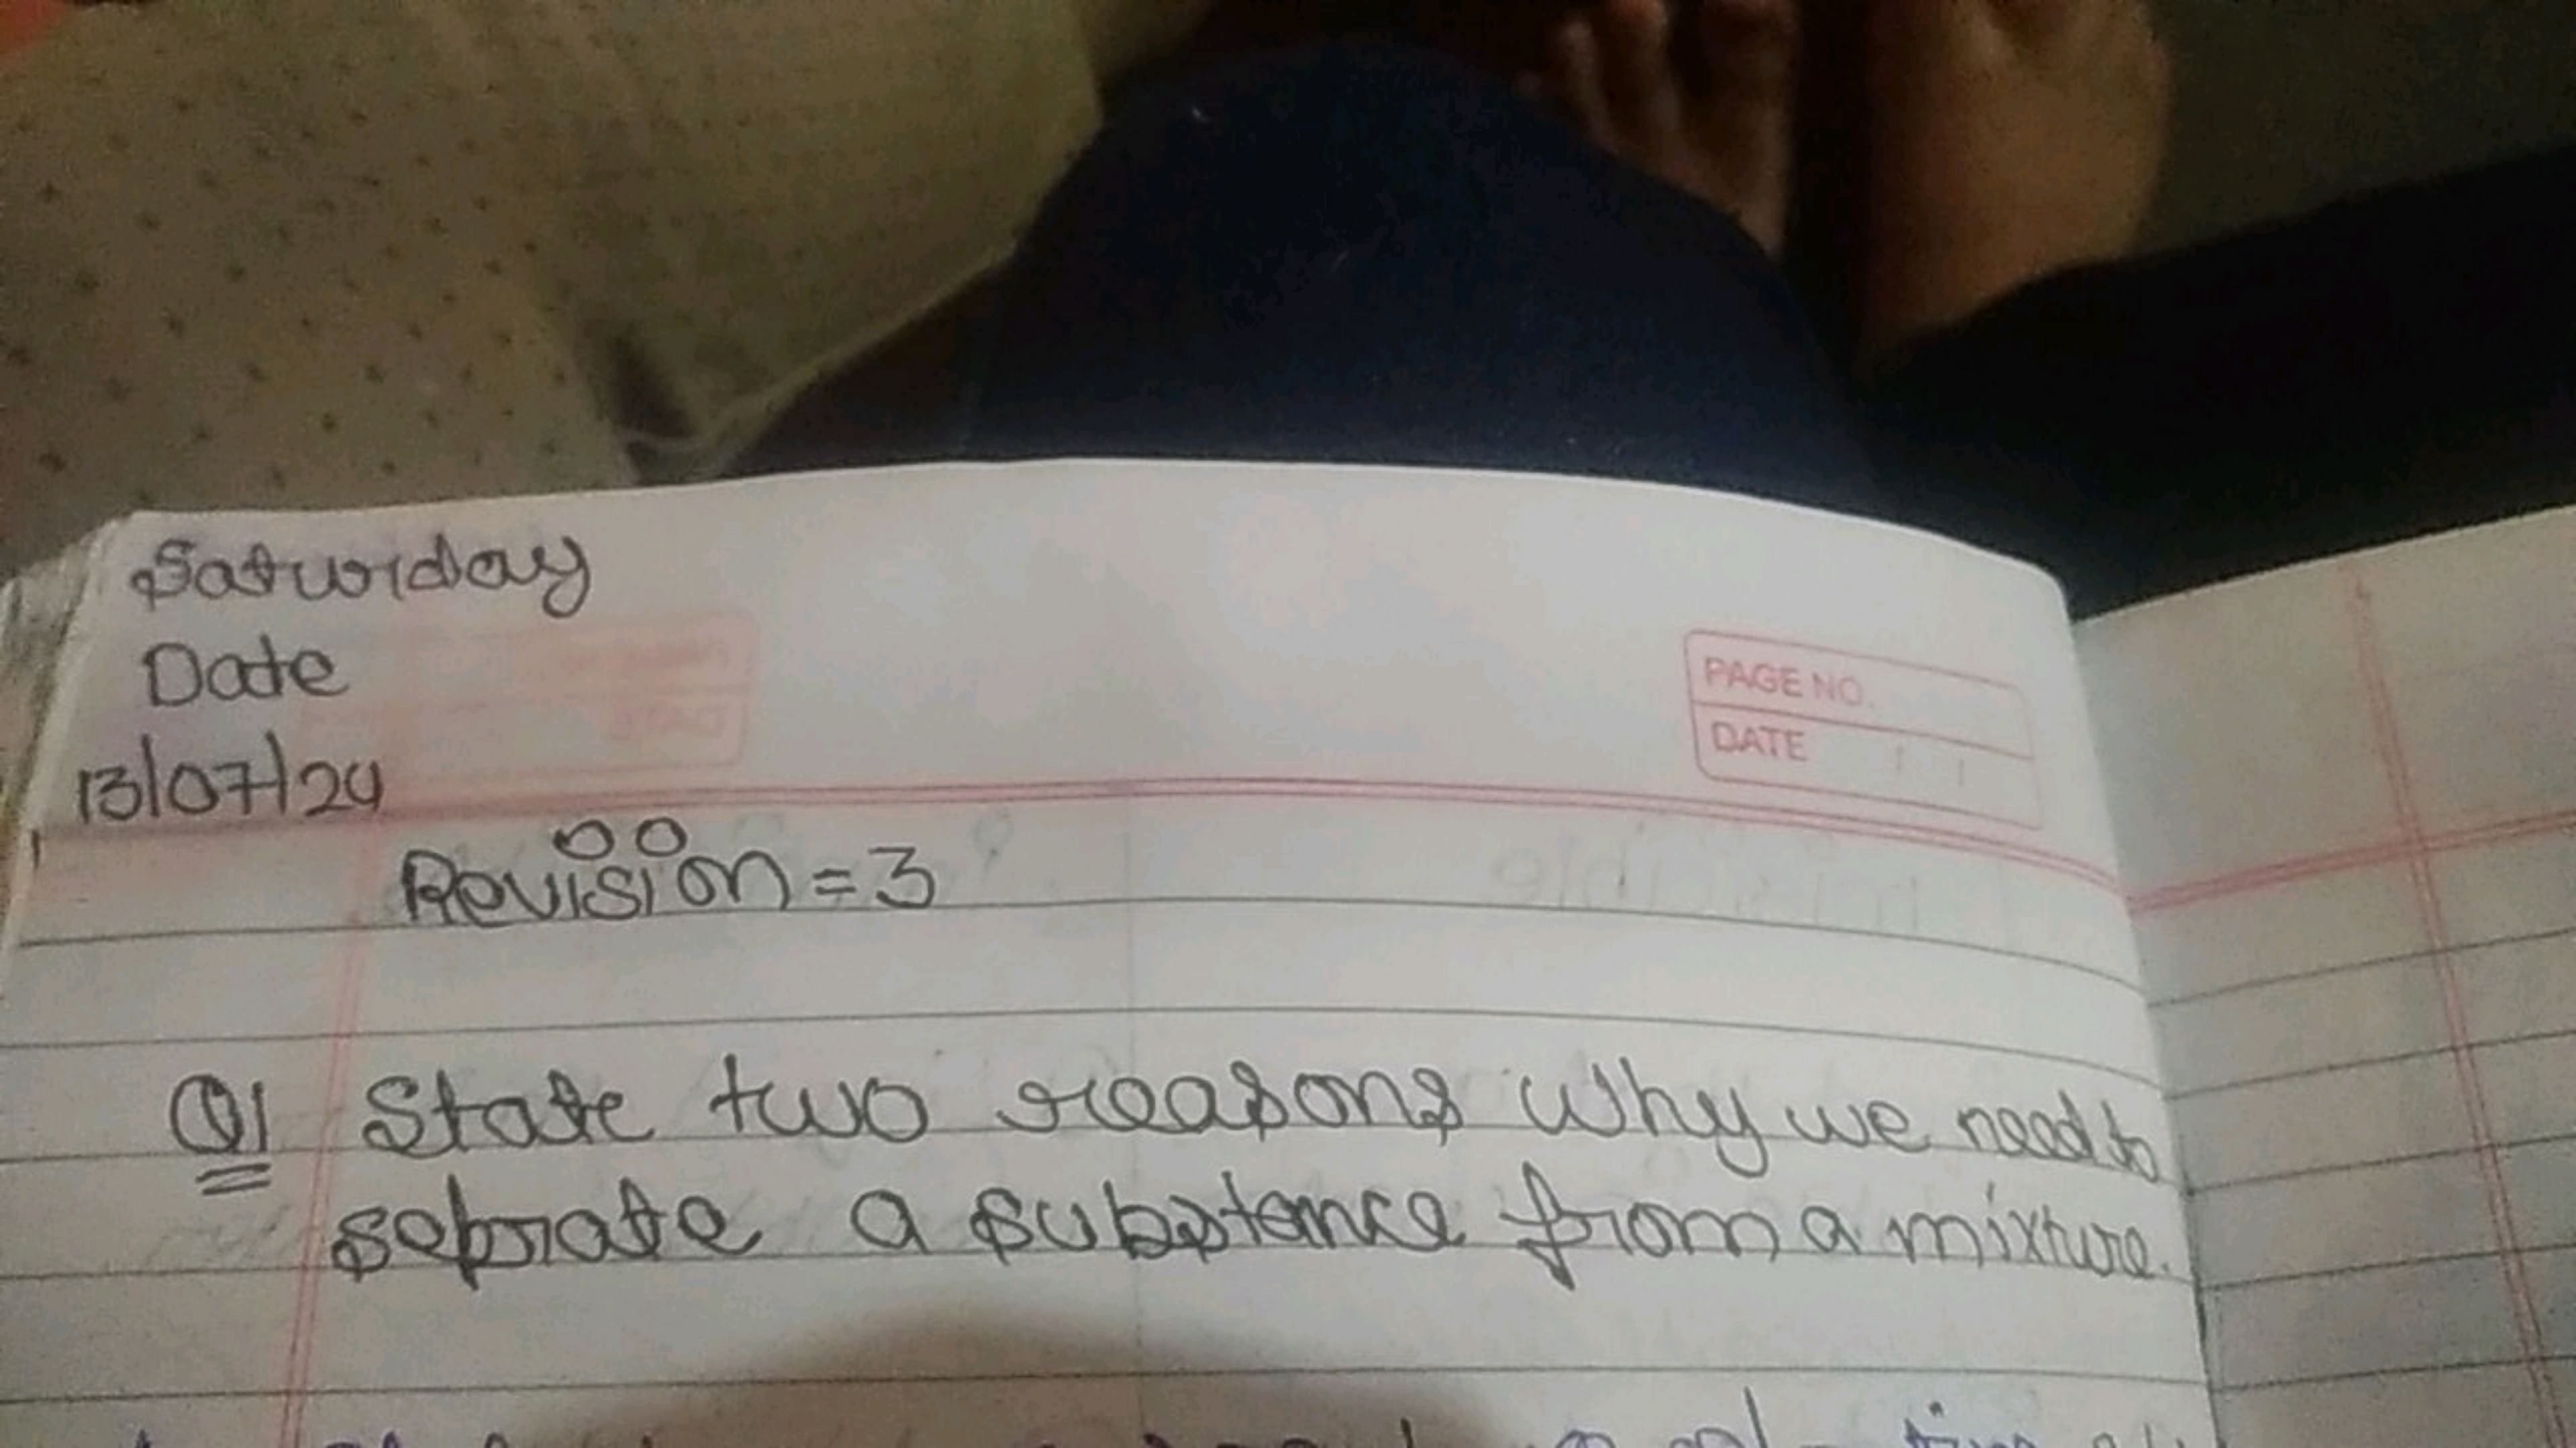 Saturday
Date
13/07/24
PAGE NO.
DATE
Revision = 3
Q1 State two reasons why we need to
seprate a substance from a mixture.